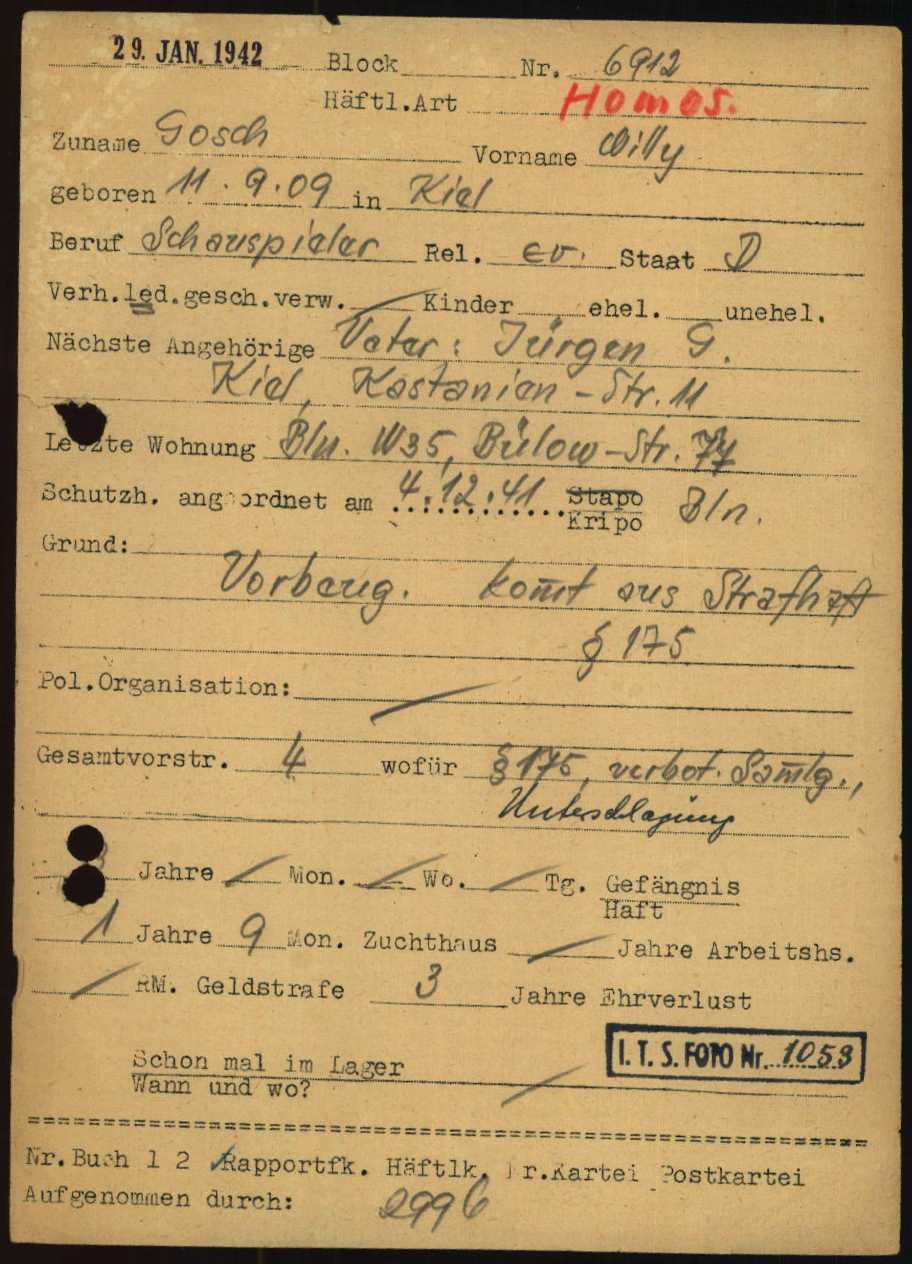 29. JAN. 1942 Block Nr. 6912
Häftl.Art Homos.
Zuname Gosch Vorname Willy
geboren 11.9.09 in Kiel
Beruf Schauspieler Rel. ev. Staat D
Verh.led.gesch.verw. Kinder ehel. unehel.
Nächste Angehörige Vater: Jürgen G.
Kiel, Kastanien-Str. 11
Letzte Wohnung Bln. W35, Bülow-Str. 77
Schutzh. angeordnet am 4.12.41 Stapo Bln.
Kripo
Grund:
Vorbeug. kom̄t aus Strafhaft
§ 175
Pol.Organisation:
Gesamtvorstr. 4 wofür § 175, verbot. Sam̄lg.,
Unterschlagung
Jahre / Mon. / Wo. / Tg. Gefängnis
Haft
1 Jahre 9 Mon. Zuchthaus / Jahre Arbeitshs.
/ RM. Geldstrafe 3 Jahre Ehrverlust
I.T.S. FOTO Nr. 1053
Schon mal im Lager
Wann und wo? /
Nr.Buch 1 2 Rapportfk. Häftlk. Dr.Kartei Postkartei
Aufgenommen durch: 2996